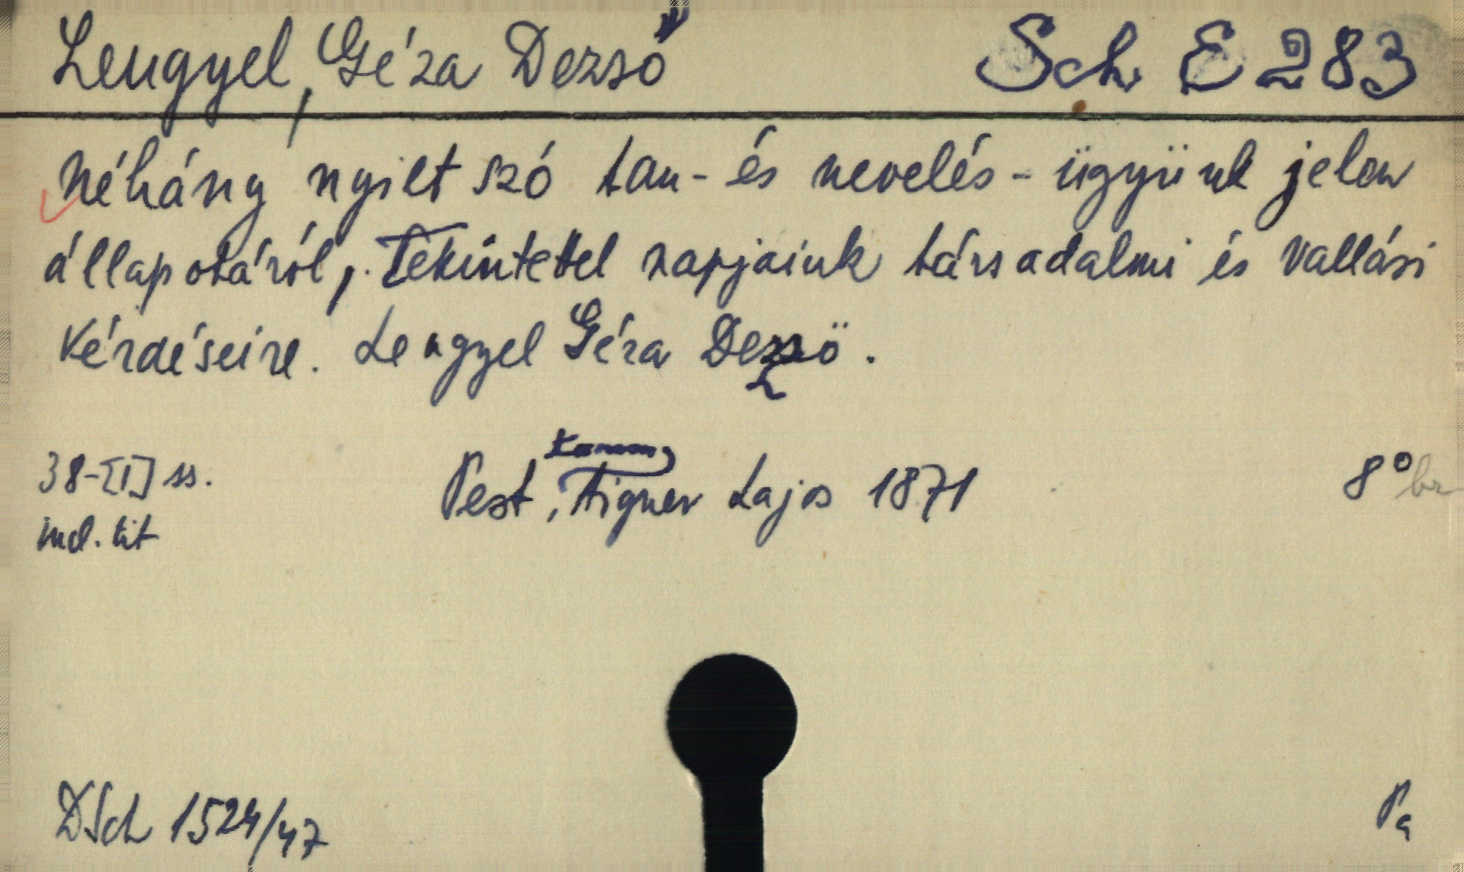 Lengyel, Géza Dezső Sch E 283
Néhány nyilt szó tan- és nevelés-ügyünk jelen
állapotáról, Tekintettel napjaink társadalmi és vallási
kérdéseire. Lengyel Géza Dezsö.
38-[1] ss. Pest, Aigner Lajos 1871 8° br
ind. tit
DSch 1524/47 Pa